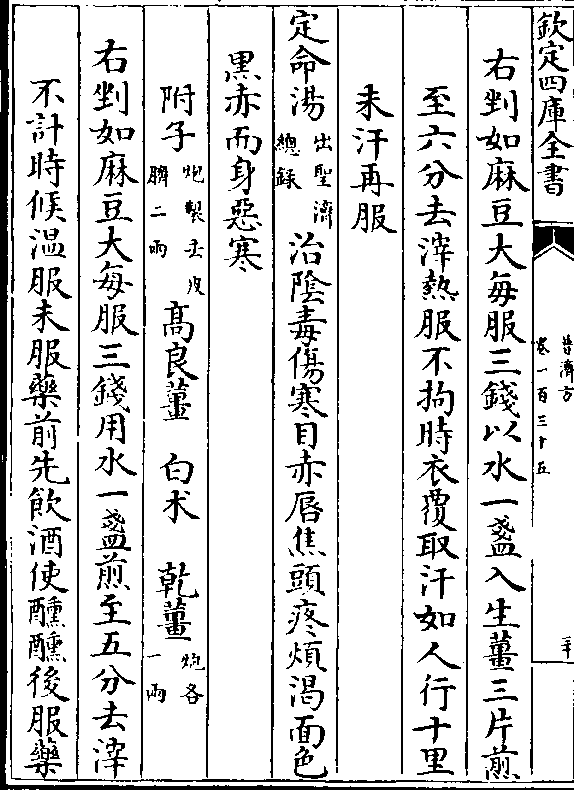 欽定四庫全書
普濟方
卷一百三十五
右剉如麻豆大每服三錢以水一盞入生薑三片煎
至六分去滓熱服不拘時衣覆取汗如人行十里
未汗再服
定命湯出聖濟總錄治陰毒傷寒目赤唇焦頭疼煩渴面色
黑赤而身惡寒
附子炮製去皮臍二兩 高良薑 白术 乾薑炮各一兩
右剉如麻豆大每服三錢用水一盞煎至五分去滓
不計時候溫服未服藥前先飲酒使醺醺後服藥